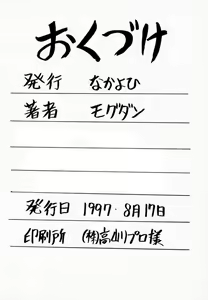 おくづけ
発行 なかよひ
著者 モグダン
発行日 1997.8月17日
印刷所 (株)高山プロ様